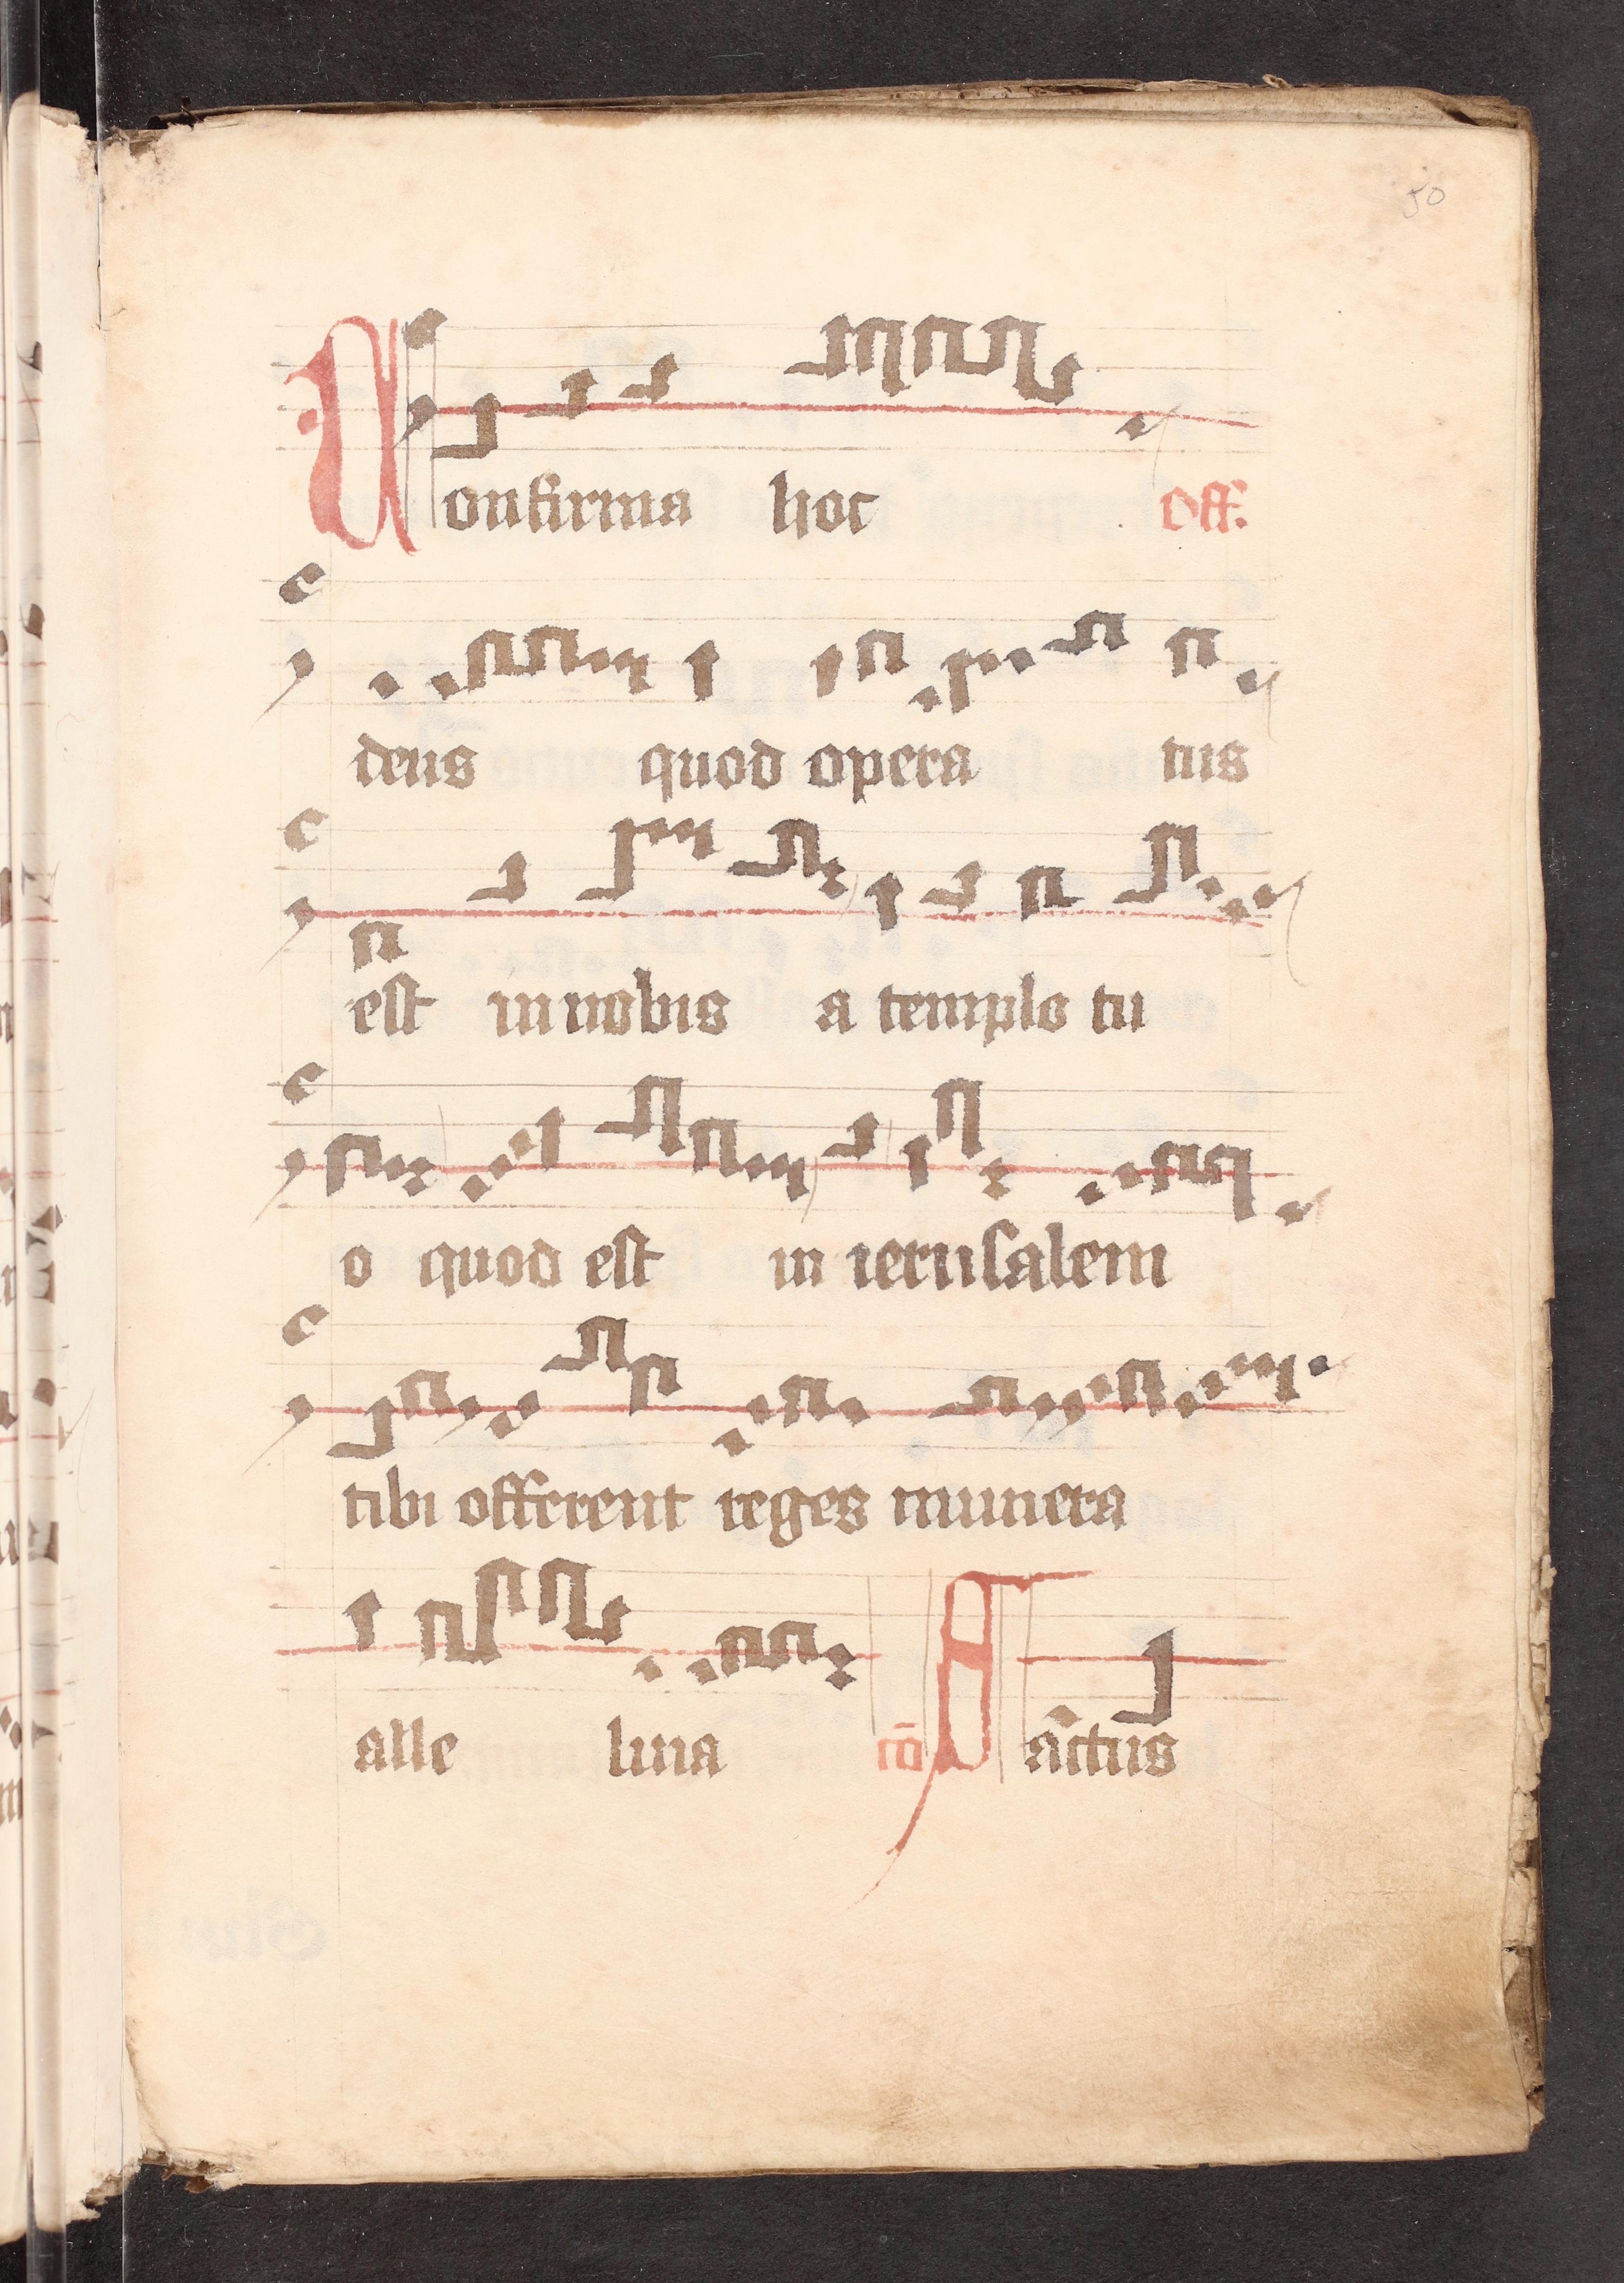 50
Confirma hoc Off.
deus quod opera tus
est in nobis a templo tu
o quod est in ierusalem
tibi offerent reges munera
alle luia cō Factus